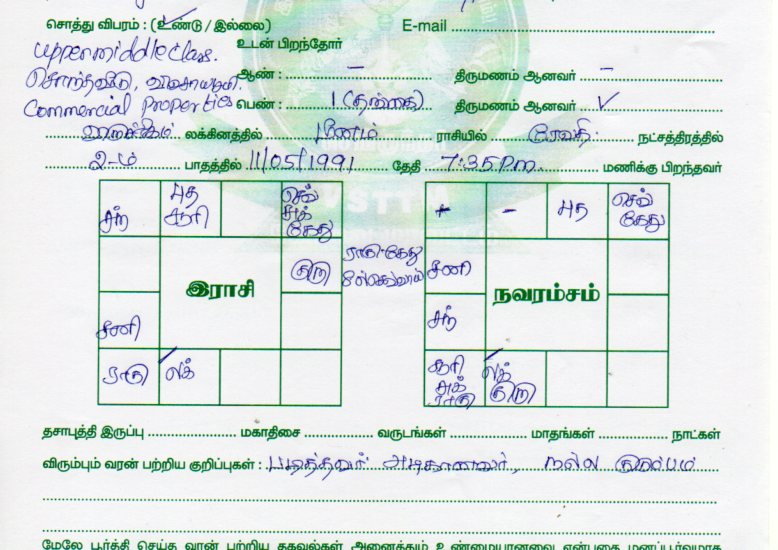 சொத்து விபரம் : (உண்டு / இல்லை) E-mail
upper middle class. உடன் பிறந்தோர்
சொந்தவீடு, விவசாயபூமி. ஆண் : – திருமணம் ஆனவர் –
Commercial Properties பெண் : 1 (தங்கை) திருமணம் ஆனவர் ✓
லக்கினத்தில் மீனம் ராசியில் ரேவதி நட்சத்திரத்தில்
2-ம் பாதத்தில் 11/05/1991 தேதி 7:35 P.m. மணிக்கு பிறந்தவர்
சந் புத சூரி செவ் சுக் கேது + – புத செவ் கேது
குரு ராகு-கேது செவ்வாய் சனி
இராசி நவரம்சம்
சனி சந்
ராகு லக் சூரி சுக் ராகு லக் குரு
தசாபுத்தி இருப்பு மகாதிசை வருடங்கள் மாதங்கள் நாட்கள்
விரும்பும் வரன் பற்றிய குறிப்புகள் : படித்தவர் அழகானவர், நல்ல குடும்பம்
மேலே பூர்த்தி செய்த வரன் பற்றிய தகவல்கள் அனைத்தும் உண்மையானவை என்பதை மனப்பூர்வமாக